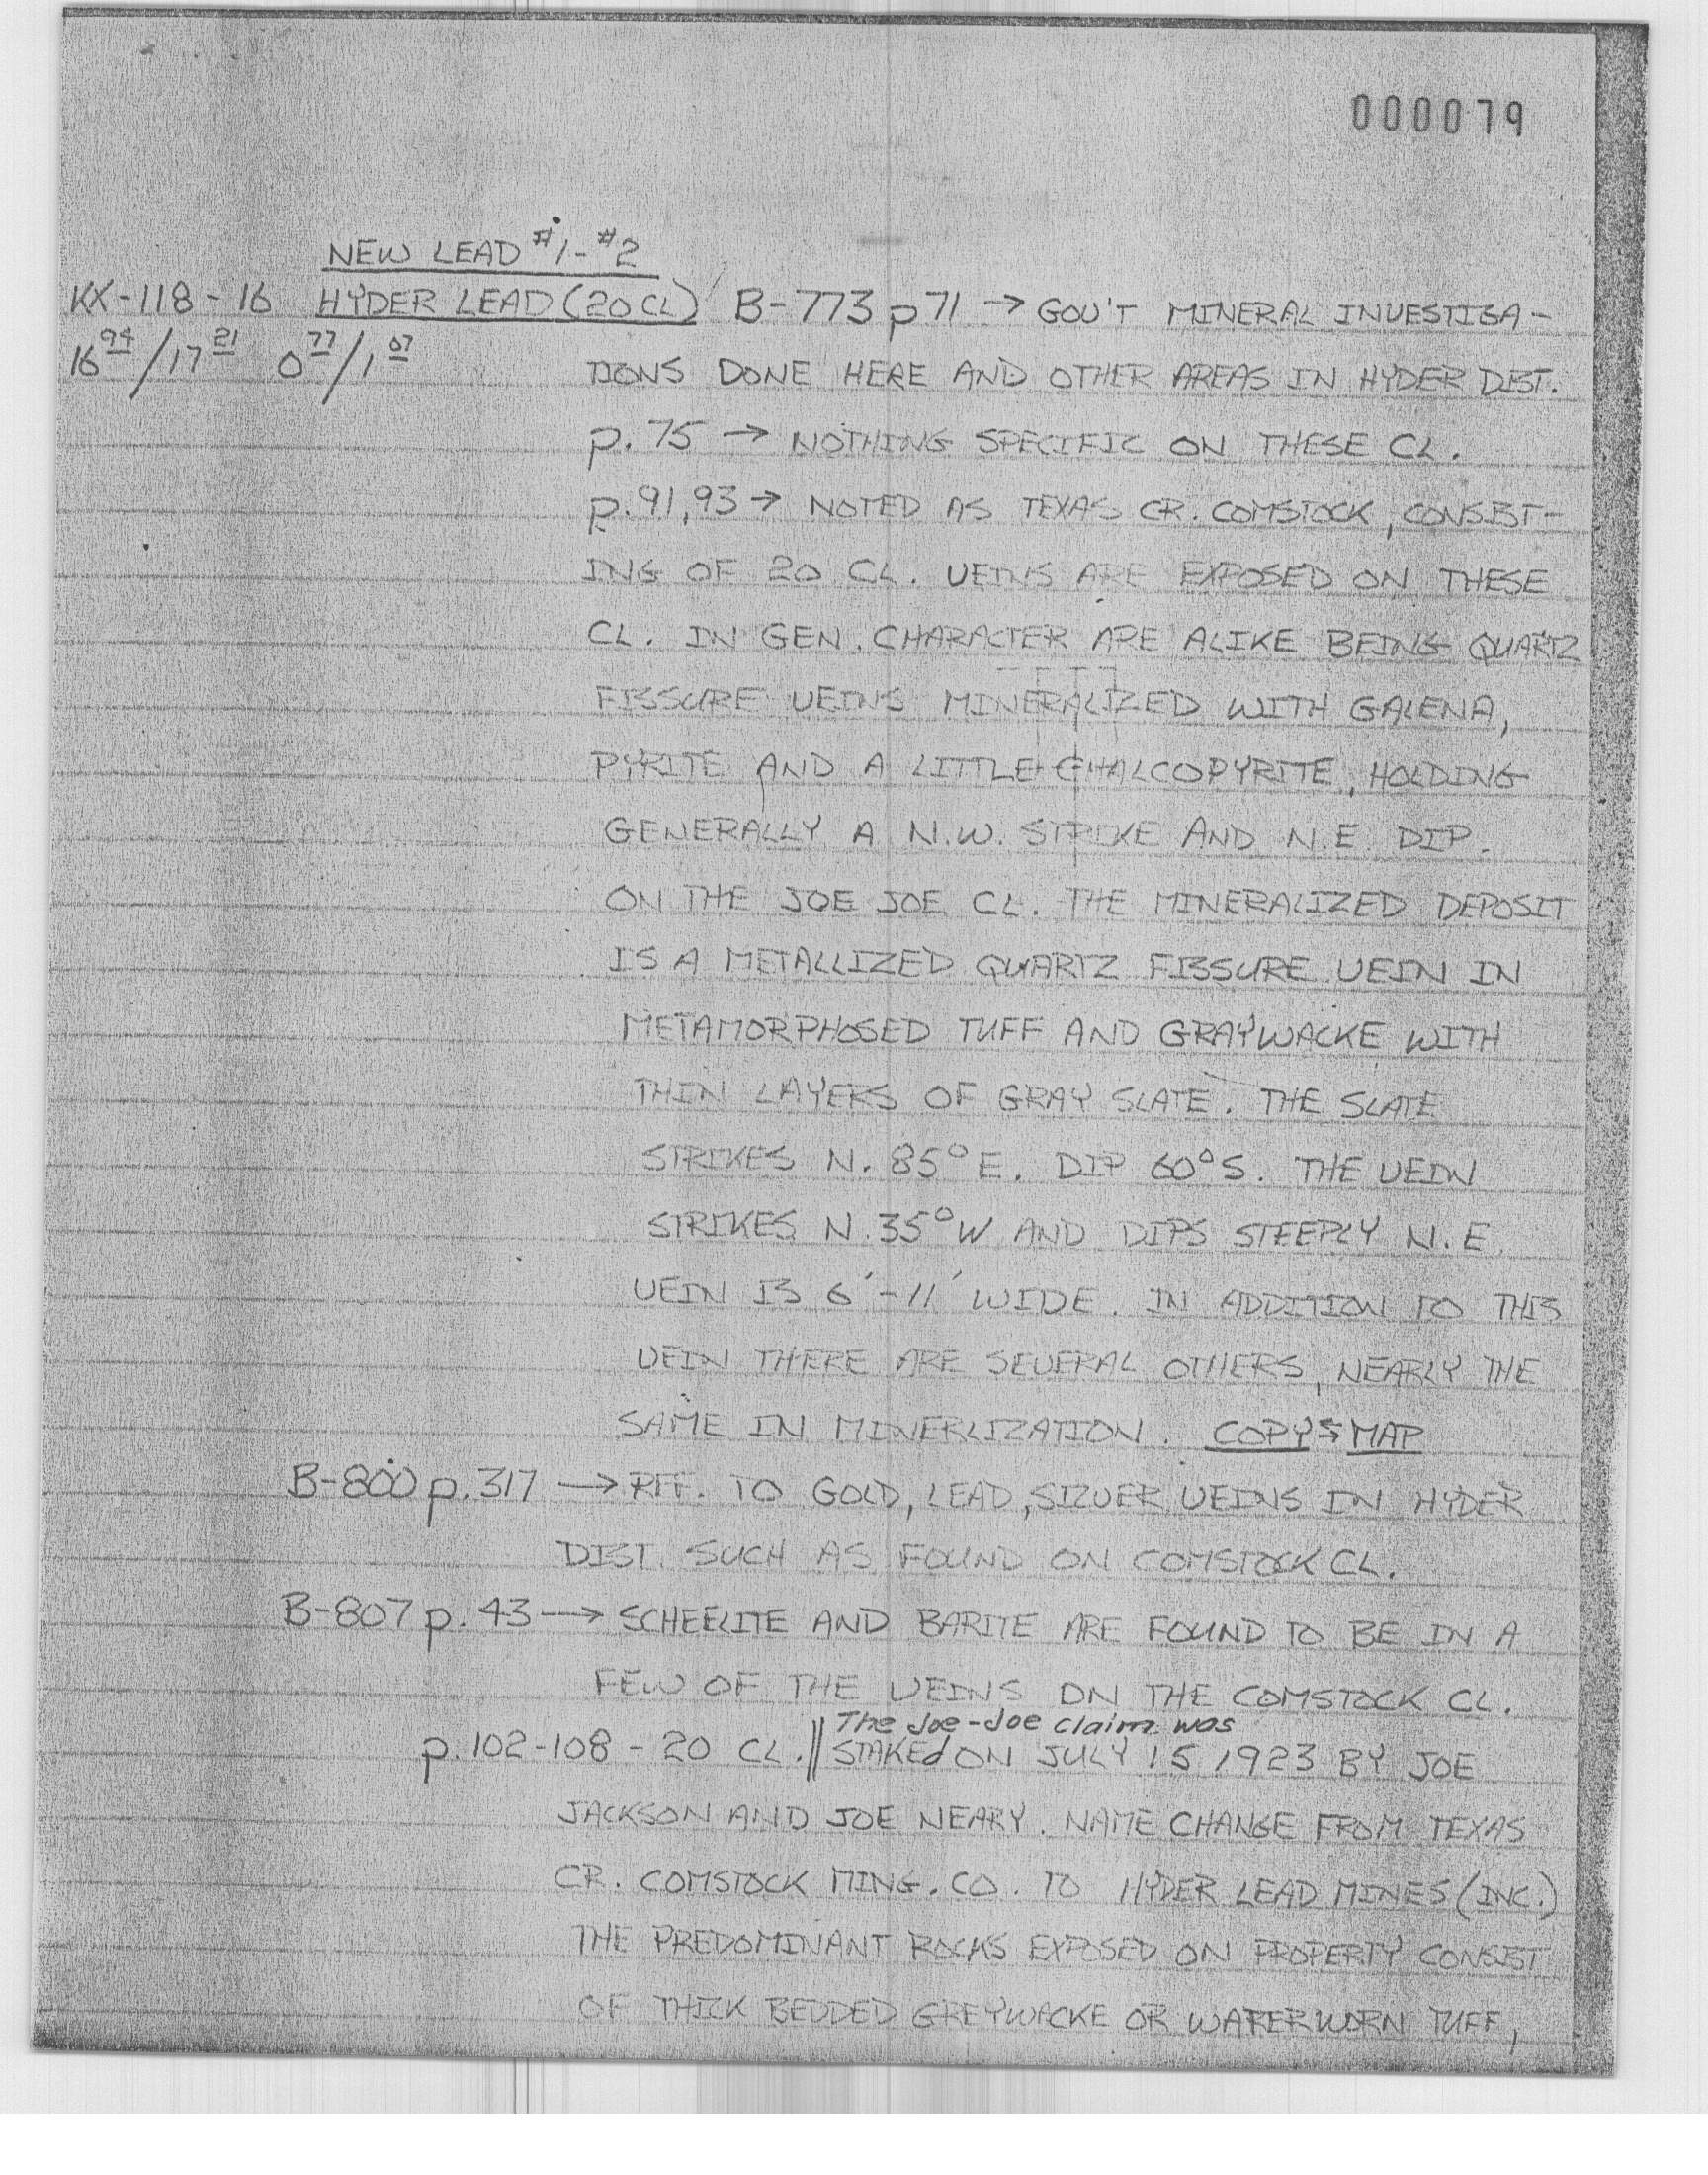 000079
NEW LEAD #1-#2
KX-118-16 HYDER LEAD (20 CL) B-773 p71 → GOV'T MINERAL INVESTIGA-
16 94/17 21 0 77/1 07 TIONS DONE HERE AND OTHER AREAS IN HYDER DIST.
p.75 → NOTHING SPECIFIC ON THESE CL.
p.91,93 → NOTED AS TEXAS CR. COMSTOCK, CONSIST-
ING OF 20 CL. VEINS ARE EXPOSED ON THESE
CL. IN GEN. CHARACTER ARE ALIKE BEING QUARTZ
FISSURE VEINS MINERALIZED WITH GALENA,
PYRITE AND A LITTLE CHALCOPYRITE, HOLDING
GENERALLY A N.W. STRIKE AND N.E. DIP.
ON THE JOE JOE CL. THE MINERALIZED DEPOSIT
IS A METALLIZED QUARTZ FISSURE VEIN IN
METAMORPHOSED TUFF AND GRAYWACKE WITH
THIN LAYERS OF GRAY SLATE. THE SLATE
STRIKES N. 85° E. DIP 60° S. THE VEIN
STRIKES N. 35° W AND DIPS STEEPLY N.E.
VEIN IS 6'-11' WIDE. IN ADDITION TO THIS
VEIN THERE ARE SEVERAL OTHERS, NEARLY THE
SAME IN MINERLIZATION. COPY & MAP
B-800 p.317 → REF. TO GOLD, LEAD, SILVER VEINS IN HYDER
DIST. SUCH AS FOUND ON COMSTOCK CL.
B-807 p.43 → SCHEELITE AND BARITE ARE FOUND TO BE IN A
FEW OF THE VEINS ON THE COMSTOCK CL.
The Joe-Joe claim was
p.102-108 - 20 CL. || STAKEd ON JULY 15 1923 BY JOE
JACKSON AND JOE NEARY. NAME CHANGE FROM TEXAS
CR. COMSTOCK MING. CO. TO HYDER LEAD MINES (INC.)
THE PREDOMINANT ROCKS EXPOSED ON PROPERTY CONSIST
OF THICK BEDDED GREYWACKE OR WATERWORN TUFF,